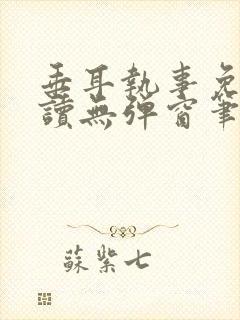 垂耳執事免
讀無彈窗筆
蘇紫七